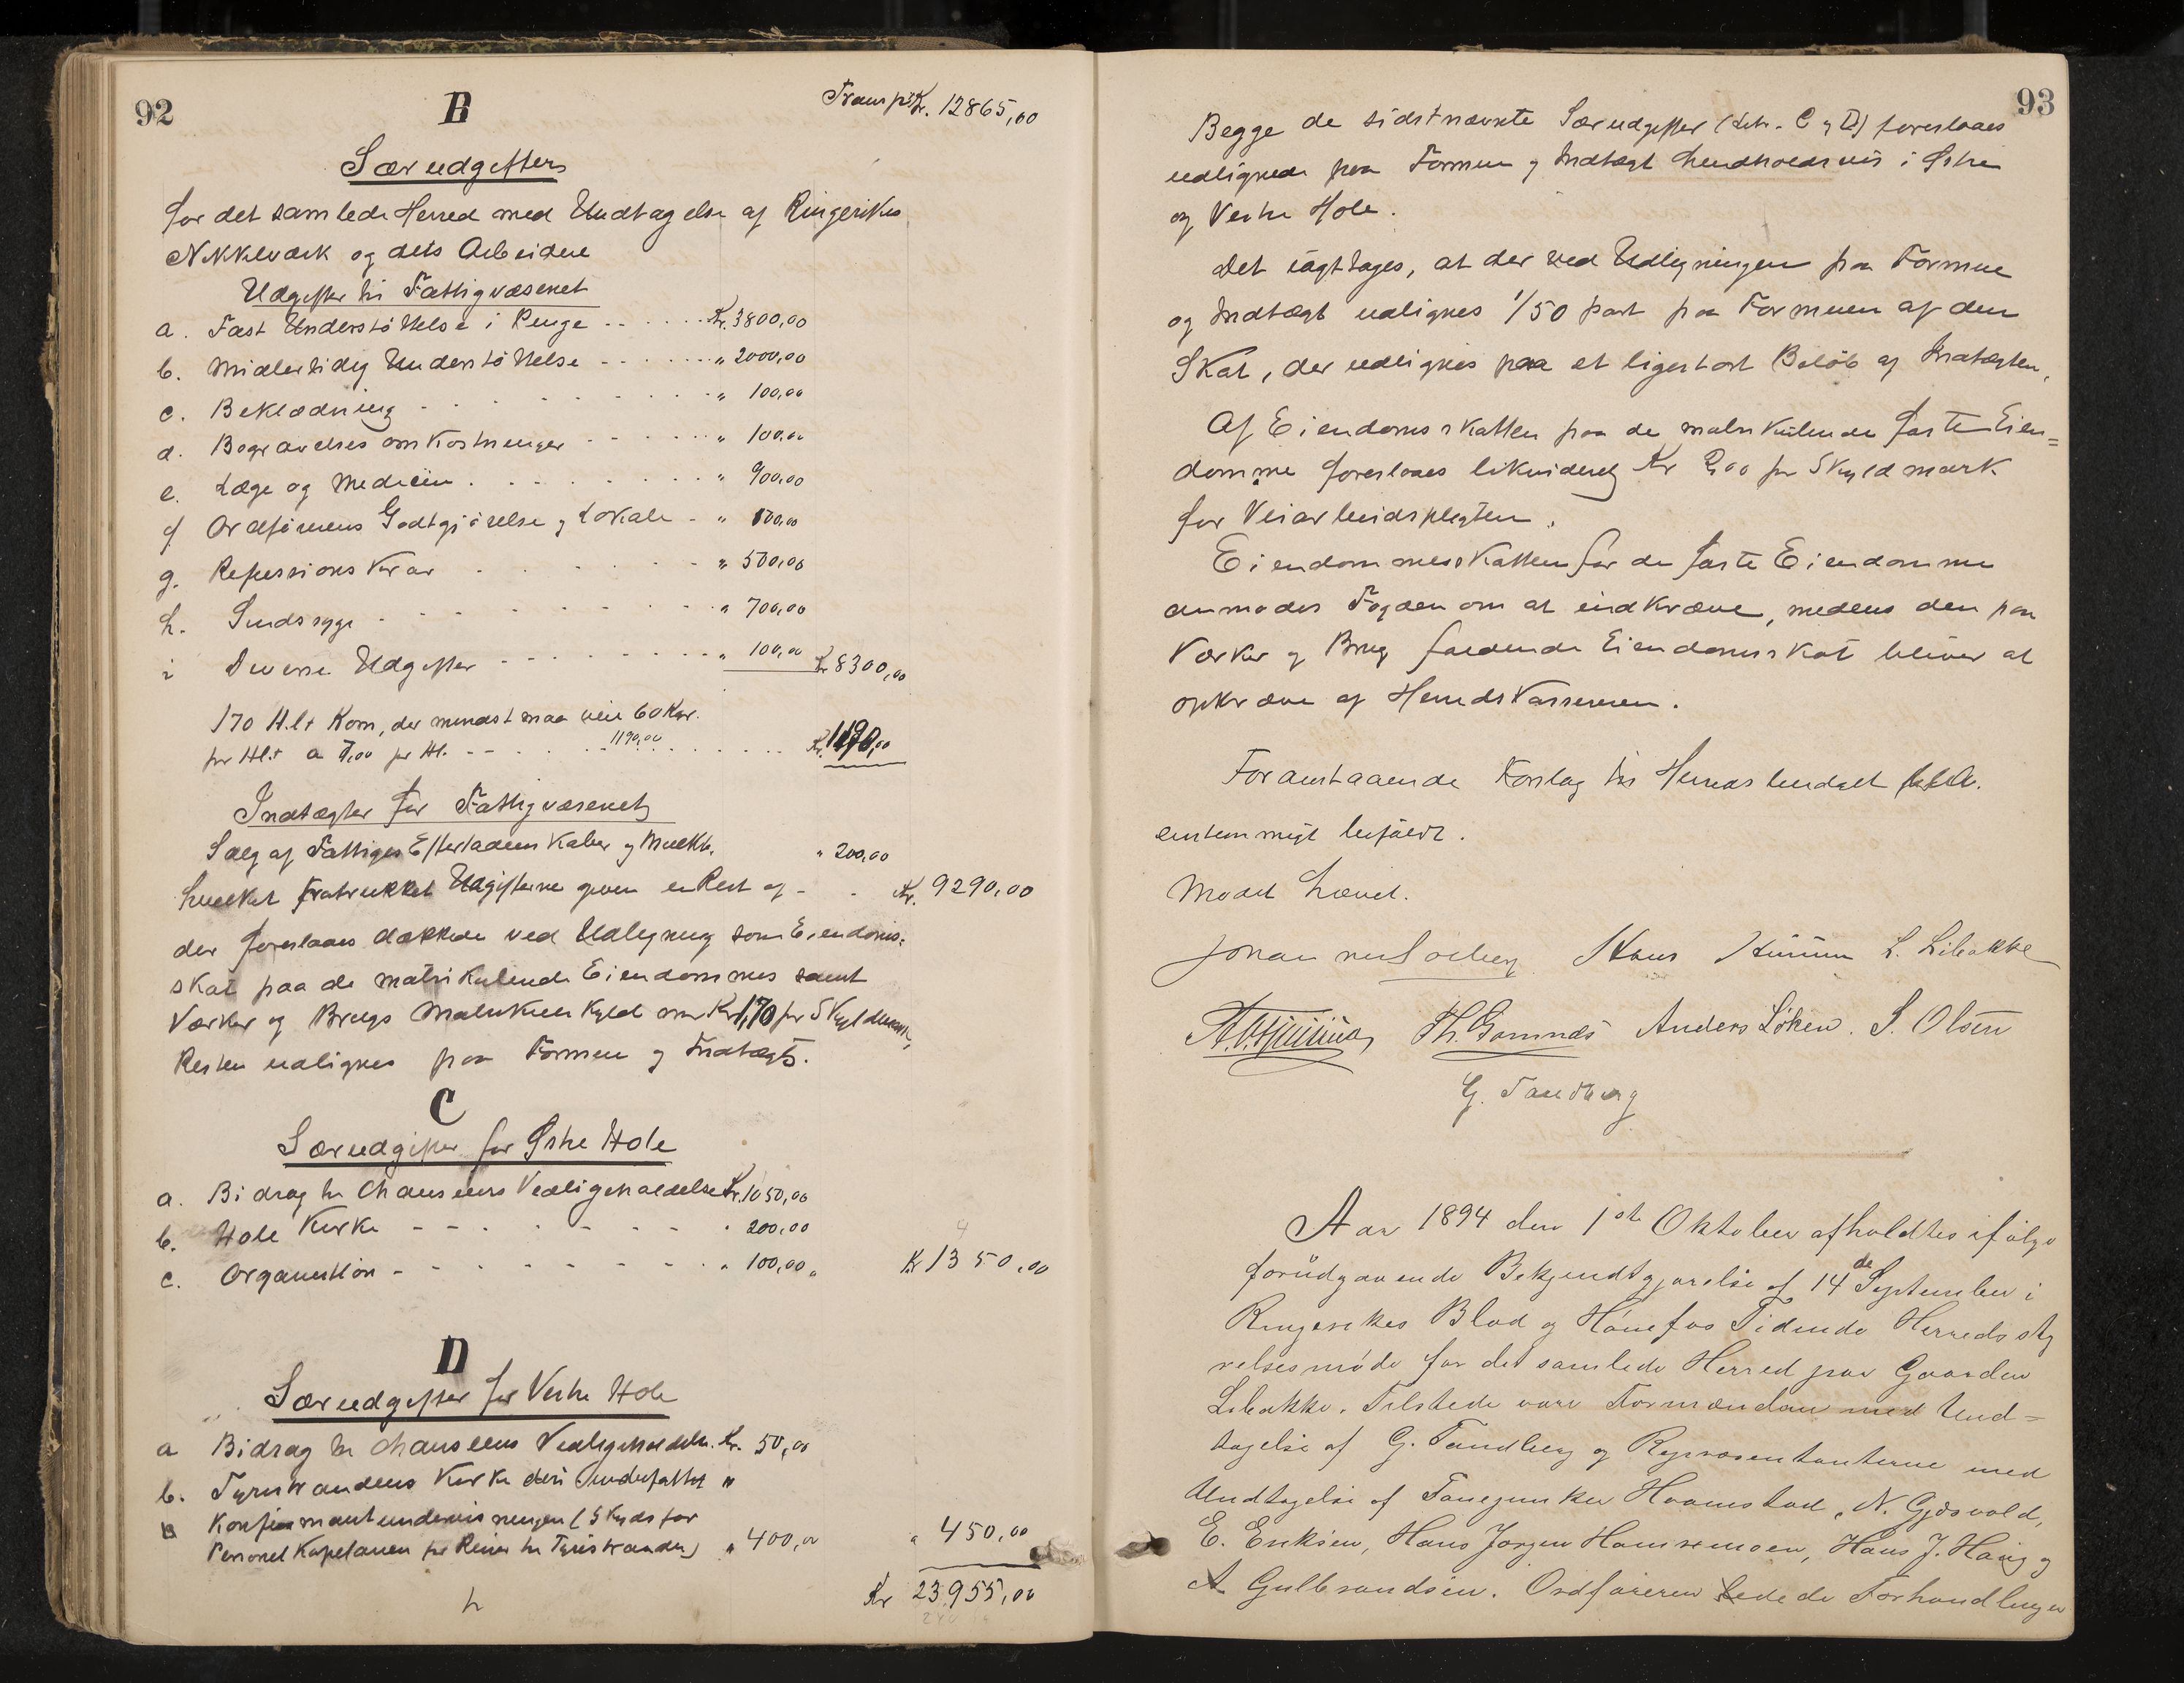 92
B
Transp. Kr. 12865,00
Særudgifter
for det samlede Herred med Undtagelse af Ringerikes
Nikkelværk og dets Arbeidere
Udgifter til Fattigvæsenet
a. Fast Understöttelse i Penge Kr. 3800,00
b. Midlertidig Understöttelse " 2000,00
c. Beklædning " 100,00
d. Begravelsesomkostninger " 100,00
e. Læge og Medicin " 900,00
f Ordförerens Godtgjörelse og Lokale " 100,00
g. Refusionskrav " 500,00
h. Sindssyge " 700,00
i Diverse Udgifter " 100,00 Kr 8300,00
170 H.lt Korn, der mindst maa veie 60 Kgr.
pr Hl.t a 7,00 pr Hl. 1190,00 Kr. 1190,00
Indtægter for Fattigvæsenet
Salg af Fattiges Efterladenskaber og Mulkt. " 200,00
hvilket fratrukket Udgifterne giver en Rest af Kr. 9290,00
der foreslaaes dækkede ved Udligning som Eiendoms-
skat paa de matrikulerede Eiendommes samt
Værker og Brugs Matrikulskyld med Kr 1,70 pr Skyldmark,
Resten udlignes paa Formue og Indtægt.
C
Særudgifter for Østre Hole
a. Bidrag til Chausseens Vedligeholdelse Kr. 1050,00
b. Hole Kirke " 200,00
c. Organistlön " 100,00 Kr 1350,00
D
Særudgifter for Vestre Hole
a Bidrag til Chausseens Vedligeholdelse Kr. 50,00
b. Tyristrandens Kirke deri indbefattet "
Konfirmantundervisningen (Skyds for
Personel Kapelanen fra Ringr. til Tyristranden) " 400,00 " 450,00
Kr 23955,00
93
Begge de sidstnævnte Særudgifter (Litr. C og D) foreslaaes
udlignede paa Formue og Indtægt henholdsvis i Østre
og Vestre Hole.
Det iagttages, at der ved Udligningen paa Formue
og Indtægt udlignes 1/50 part paa Formuen af den
Skat, der udlignes paa et ligestort Belöb af Indtægten.
Af Eiendomsskatten paa de matrikulerede faste Eien=
domme foreslaaes likvideret Kr 2,00 pr Skyldmark
for Veiarbeidspligten.
Eiendommesskatten for de faste Eiendomme
anmodes Fogden om at indkræve, medens den paa
Værker og Brug faldende Eiendomsskat bliver at
opkræve af Herredskassereren.
Foranstaaende Forslag til Herredsbudget blev
enstemmigt bifaldt.
Mödet hævet.
Johannes Solberg Hans L. Libakke
Th. Gomnæs Anders Löken. S. Olsen
G. Tandberg
Aar 1894 den 1ste Oktober afholdtes ifølge
forudgaaende Bekjendtgjørelse af 14de September i
Ringerikes Blad og Hønefos Tidende Herredssty
relsesmøde for det samlede Herred paa Gaarden
Libakke. Tilstede vare Formændene med Und=
tagelse af G. Tandberg og Repræsentanterne med
Undtagelse af Fanejunker Hvamstad, N. Gjøsvold,
E. Eriksen, Hans Jørgen Hamremoen, Hans J. Haug og
A Gulbrandsen. Ordføreren ledede Forhandlingen